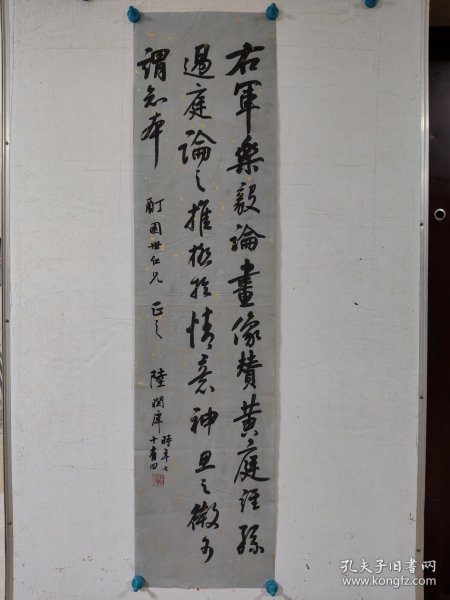 右軍樂毅論畫像贊黃庭經孫
過庭論之推極於情意神思之微可
謂知本
酊圃世仁兄 正之
陸潤庠時年七
十有四
孔夫子旧书网
www.kongfz.com